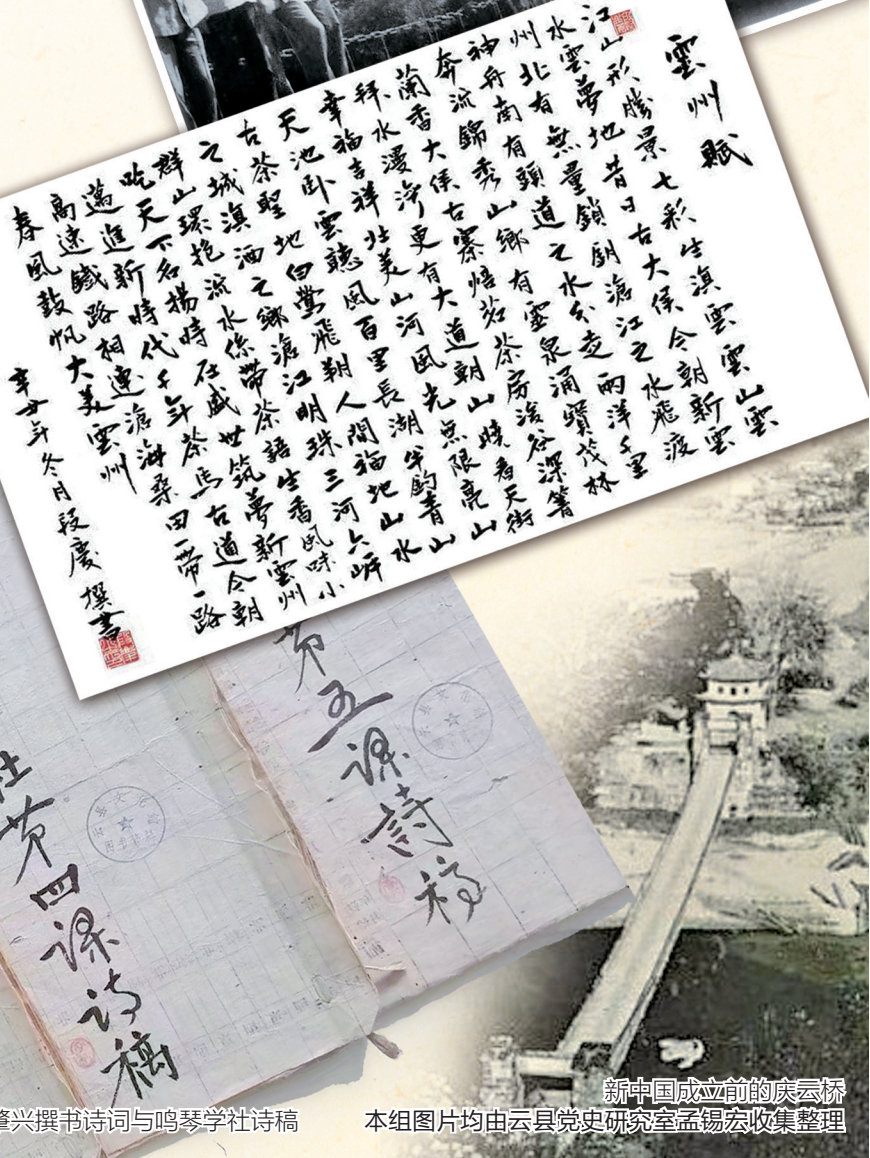 雲州賦
江山形勝景七彩生滇雲雲山雲
水雲夢地昔日古大侯今朝新雲
州北有無量鎖鑰滄江之水飛渡
神舟南有頭道之水分走兩洋千里
奔流錦秀山鄉有靈泉涌寶茂林
蘭香大侯古寨悟茗茶房滄谷深箐
拜水漫灣更有大道朝山曉看天街
幸福吉祥壯美山河風光無限亮山
天池卧雲聽風百里長湖半釣青山
古茶聖地白鶯飛翔人間福地山水
之城滇酒之鄉滄江明珠三河六岸
群山環抱流水係帶茶語生香風味小
吃天下名揚時在盛世筑夢新雲州
邁進新時代千年茶馬古道今朝
高速鐵路相連滄海桑田一帶一路
春風鼓帆大美雲州
辛丑年冬月段慶 撰書
第五课詩稿
社第四课诗稿
新中国成立前的庆云桥
肇兴撰书诗词与鸣琴学社诗稿
本组图片均由云县党史研究室孟锡宏收集整理